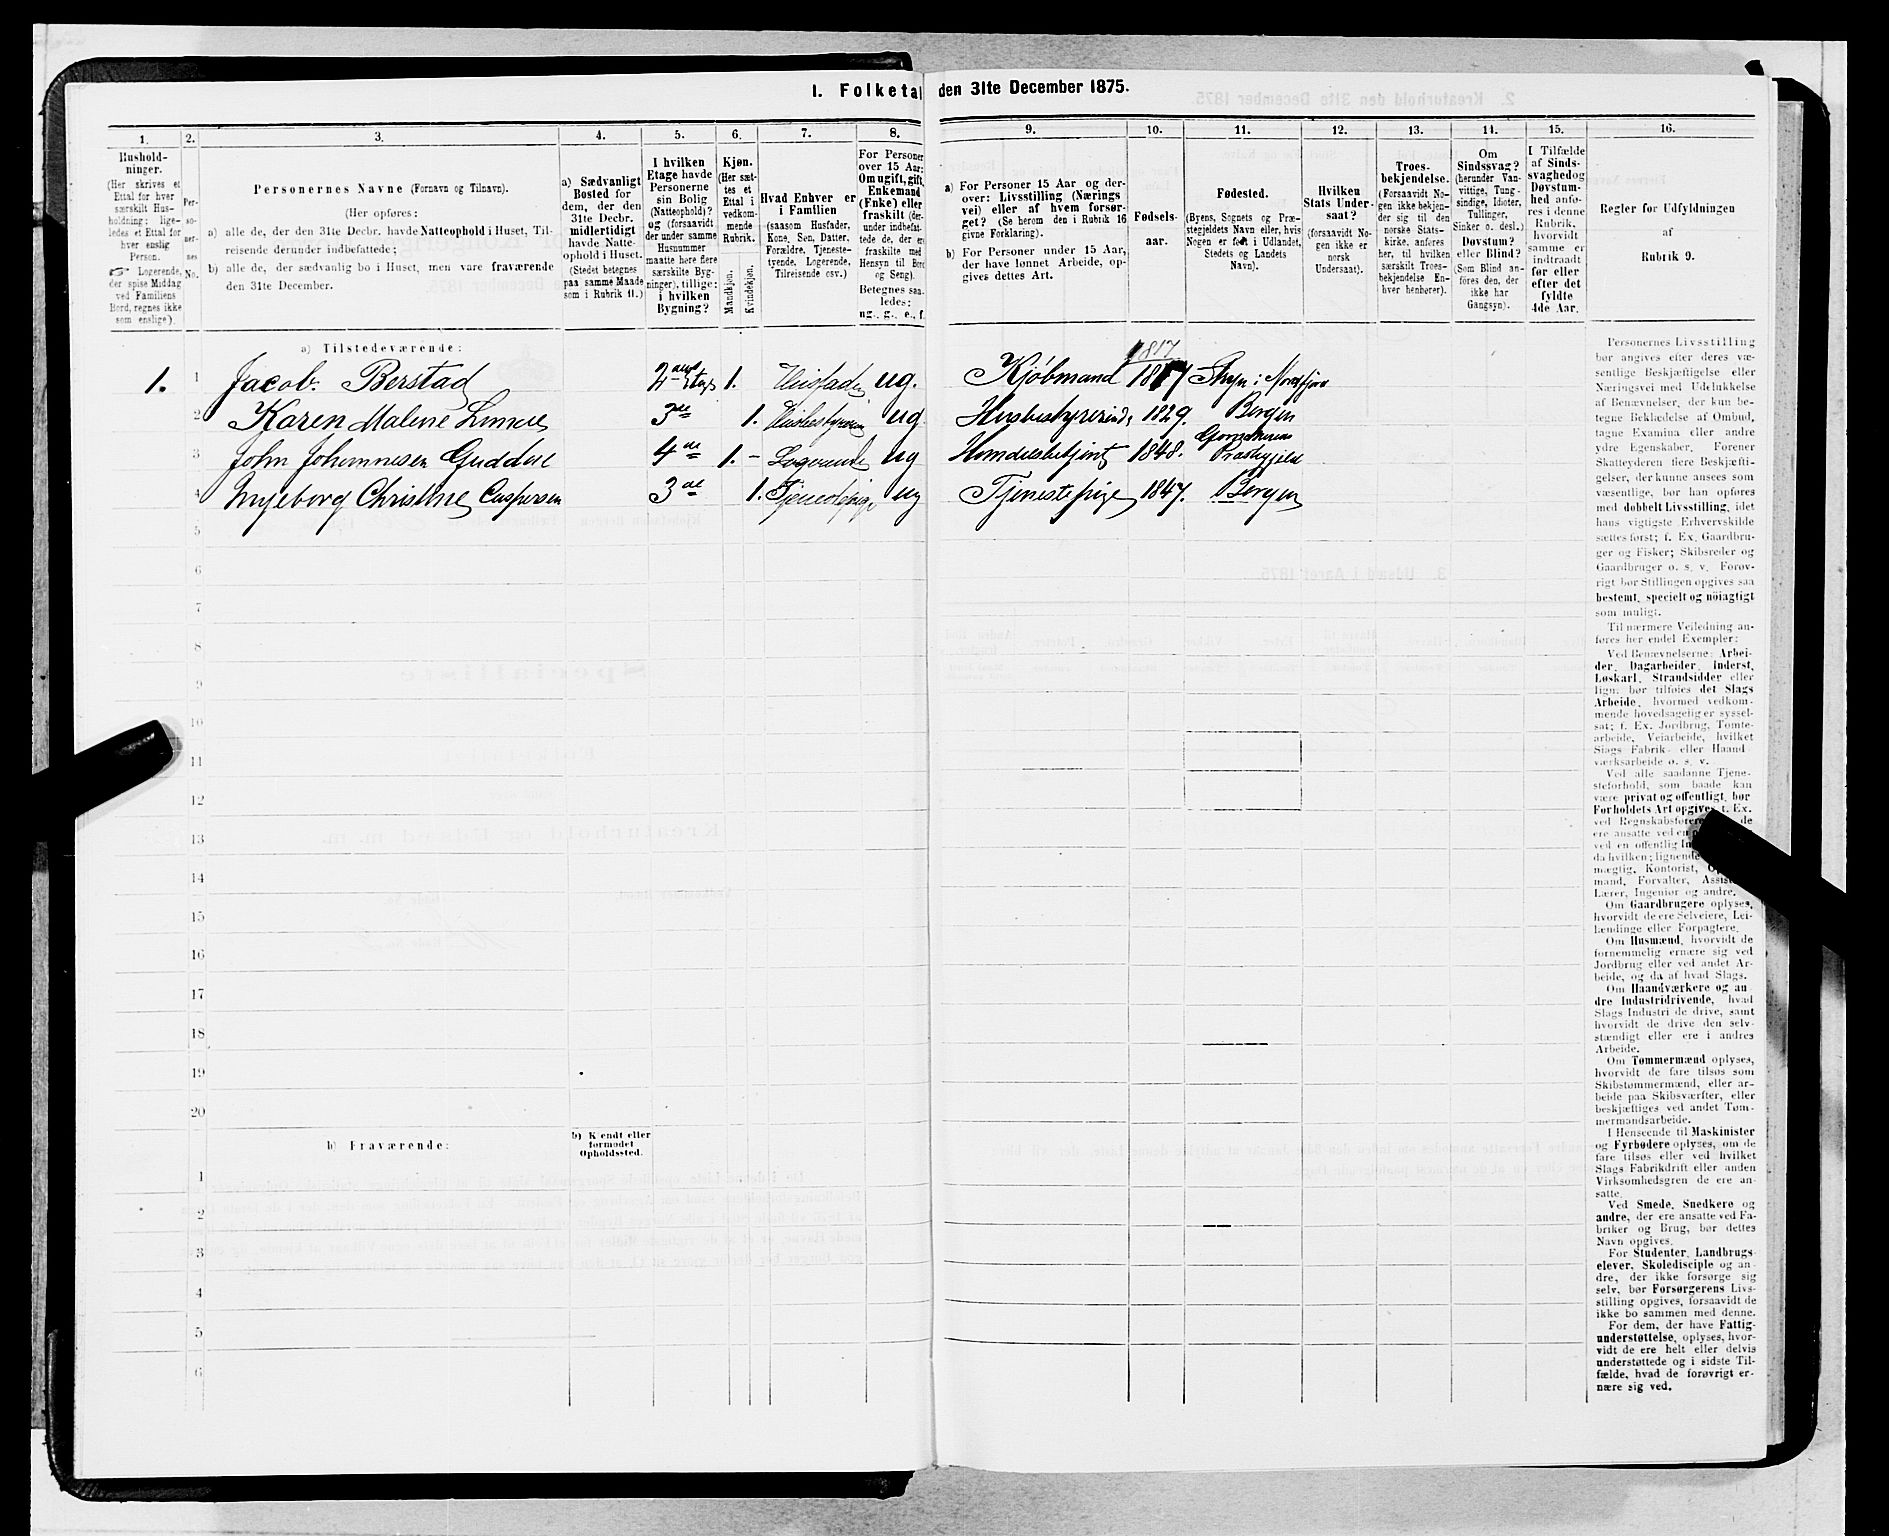 1. Folketal den 31te December 1875.
1.
Hushold-
ninger.
(Her skrives et
Ettal for hver
særskilt Hus-
holdning; lige-
ledes et Ettal for
hver enslig
Person.
Logerende,
der spise Middag
ved Familiens
Bord, regnes ikke
som enslige).
2.
Per-
so-
ner-
nes
No.
3.
Personernes Navne (Fornavn og Tilnavn).
(Her opføres:
a) alle de, der den 31te Decbr. havde Natteophold i Huset, Til-
reisende derunder indbefattede;
b) alle de, der sædvanlig bo i Huset, men vare fraværende
den 31te December.
4.
a) Sædvanligt
Bosted for
dem, der den
31te Decbr.
midlertidigt
havde Natte-
ophold i Huset.
(Stedet betegnes
paa samme Maade
som i Rubrik 11.)
5.
I hvilken
Etage havde
Personerne
sin Bolig
(Natteophold)?
og (forsaavidt
der under samme
Husnummer
maatte høre flere
særskilte Byg-
ninger), tillige:
i hvilken
Bygning?
6.
Kjøn.
(Her sæt-
tes et
Ettal i
vedkom-
mende
Rubrik.
Mandkjøn.
Kvindekjøn.
7.
Hvad Enhver er
i Familien
(saasom Husfader,
Kone, Søn, Datter,
Forældre, Tjeneste-
tyende, Logerende,
Tilreisende osv.)
8.
For Personer
over 15 Aar:
Om ugift, gift,
Enkemand
(Enke) eller
fraskilt (der-
under indbefat-
tede de, der ere
fraskilte med
Hensyn til Bord
og Seng).
Betegnes saa-
ledes:
ug., g., e., f.
9.
a) For Personer 15 Aar og der-
over: Livsstilling (Nærings
vei) eller af hvem forsør-
get? (Se herom den i Rubrik 16
givne Forklaring).
b) For Personer under 15 Aar,
der have lønnet Arbeide, op-
gives dettes Art.
10.
Fødsels-
aar.
11.
Fødested.
(Byens, Sognets og Præ-
stegjeldets Navn eller, hvis
Nogen er født i Udlandet,
Stedets og Landets
Navn).
12.
Hvilken
Stats Under-
saat?
(forsaavidt No-
gen ikke er
norsk
Undersaat).
13.
Troes-
bekjendelse.
(Forsaavidt No-
gen ikke bekjen-
der sig til den
norske Stats-
kirke, anføres
her, til hvilken
særskilt Troes-
bekjendelse En-
hver henhører).
14.
Om
Sindssvag?
(herunder Van-
vittige, Tung-
sindige, Idioter,
Tullinger,
Sinker o. desl.)
Døvstum?
eller Blind?
(Som Blind an-
føres den, der
ikke har
Gangsyn).
15.
I Tilfælde
af Sinds-
svaghed og
Døvstum-
hed anfø-
res i denne
Rubrik,
hvorvidt
samme er
indtraadt
før eller
efter det
fyldte
4de Aar.
16.
Regler for Udfyldningen
af
Rubrik 9.
a) Tilstedeværende:
1817
1. 1 Jacob Berstad 2den Etage 1. Husfader ug. Kjøbmand 1817 Stryn i Nordfjord
2 Karen Malene 3de 1. Husbestyrerinde ug. Husbestyrerinde 1829. Bergen
3 John Johannesen 4de 1. - Logerende ug Handelsbetjent 1848. Præstegjeld
4 Ingeborg Christine Caspersen 3de 1. Tjenestepige ug Tjenestepige 1847. Bergen
5
6
7
8
9
10
11
12
13
14
15
16
17
18
19
20
b) Fraværende:
b) Kjendt eller
formodet
Opholdssted.
1
2
3
4
5
6
Personernes Livsstilling
bør angives efter deres væ-
sentlige Beskjæftigelse eller
Næringsvei med Udelukkelse
af Benævnelser, der kun be-
tegne Beklædelse af Ombud,
tagne Examina eller andre
ydre Egenskaber. Forener
Skatteyderen flere Beskjæfti-
gelser, der kunne ansees som
væsentlige, bør han opføres
med dobbelt Livsstilling, idet
hans vigtigste Erhvervskilde
sættes først; f. Ex. Gaardbru-
ger og Fisker; Skibsreder og
Gaardbruger o. s. v. Forøv-
rigt bør Stillingen opgives saa
bestemt, specielt og nöiagtigt
som muligt.
Til nærmere Veiledning an-
føres her endel Exempler:
Ved Benævnelserne: Arbei-
der, Dagarbeider, Inderst,
Løskarl, Strandsidder eller
lign. bør tilføies det Slags
Arbeide, hvormed vedkom-
mende hovedsagelig er syssel-
sat; f. Ex. Jordbrug, Tomte-
arbeide, Veiarbeide, hvilket
Slags Fabrik- eller Haand-
værksarbeide o. s. v.
Ved alle saadanne Tjene-
steforhold, som baade kan
være privat og offentligt, bør
Forholdets Art opgives, f. Ex.
ved Regnskabsførere de
ere ansatte ved en
ved en offentlig
da hvilken; lignende
mægtig, Kontorist,
mand, Forvalter,
Lærer, Ingeniør og andre.
Om Gaardbrugere oplyses,
hvorvidt de ere Selveiere, Lei-
lændinge eller Forpagtere.
Om Husmænd, hvorvidt de
fornemmelig ernære sig ved
Jordbrug eller ved andet Ar-
beide, og da af hvad Slags.
Om Haandværkere og an-
dre Industridrivende, hvad
Slags Industri de drive, samt
hvorvidt de drive den selv-
stændigt eller ere i andres
Arbeide.
Om Tømmermænd oplyses,
hvorvidt de fare tilsøs som
Skibstømmermænd, eller ar-
beide paa Skibsværfter, eller
beskjæftiges ved andet Tøm-
mermandsarbeide.
I Henseende til Maskinister
og Fyrbødere oplyses, om de
fare tilsøs eller ved hvilket
Slags Fabrikdrift eller anden
Virksomhedsgren de ere an-
satte.
Ved Smede, Snedkere og
andre, der ere ansatte ved Fa-
briker og Brug, bør dettes
Navn opgives.
For Studenter, Landbrugs-
elever, Skoledisciple og an-
dre, der ikke forsørge sig
selv, bør Forsørgerens Livs-
stilling opgives, forsaavidt de
ikke bo sammen med denne.
For dem, der have Fattig-
understøttelse, oplyses, hvor-
vidt de ere helt eller delvis
understøttede og i sidste Til-
fælde, hvad de forøvrigt er-
nære sig ved.